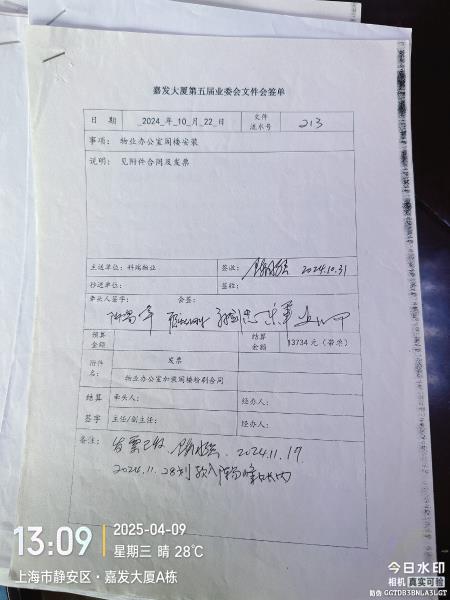 嘉发大厦第五届业委会文件会签单
日 期 2024 年 10 月 22 日 文件流水号 213
事项: 物业办公室阁楼安装
说明: 见附件合同及发票
主送单位: 科瑞物业 签收: 2024.10.31
抄送单位: 签验:
牵头人签字: 会签:
预算金额 结算金额 13734 元（若示）
附件名: 发票
物业办公室加装阁楼粉刷合同
结算 牵头人: 经办人:
签字 主任/副主任: 经办人:
备注: 发票已收 2024.11.17
2024.11.28 划款入
13:09 2025-04-09
星期三 晴 28℃
上海市静安区·嘉发大厦A栋
今日水印
相机 真实可验
防伪 GGTDB3BNLA3LGT